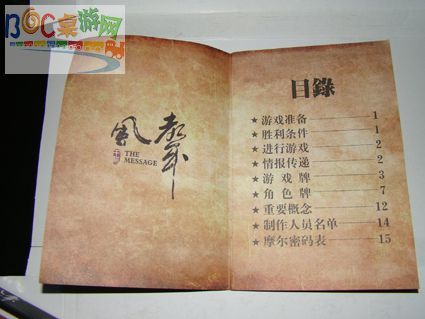 BOC桌游网
风声
THE
MESSAGE
目錄
★ 游戏准备 1
★ 胜利条件 1
★ 进行游戏 2
★ 情报传递 2
★ 游戏牌 3
★ 角色牌 7
★ 重要概念 12
★ 制作人员名单 14
★ 摩尔密码表 15